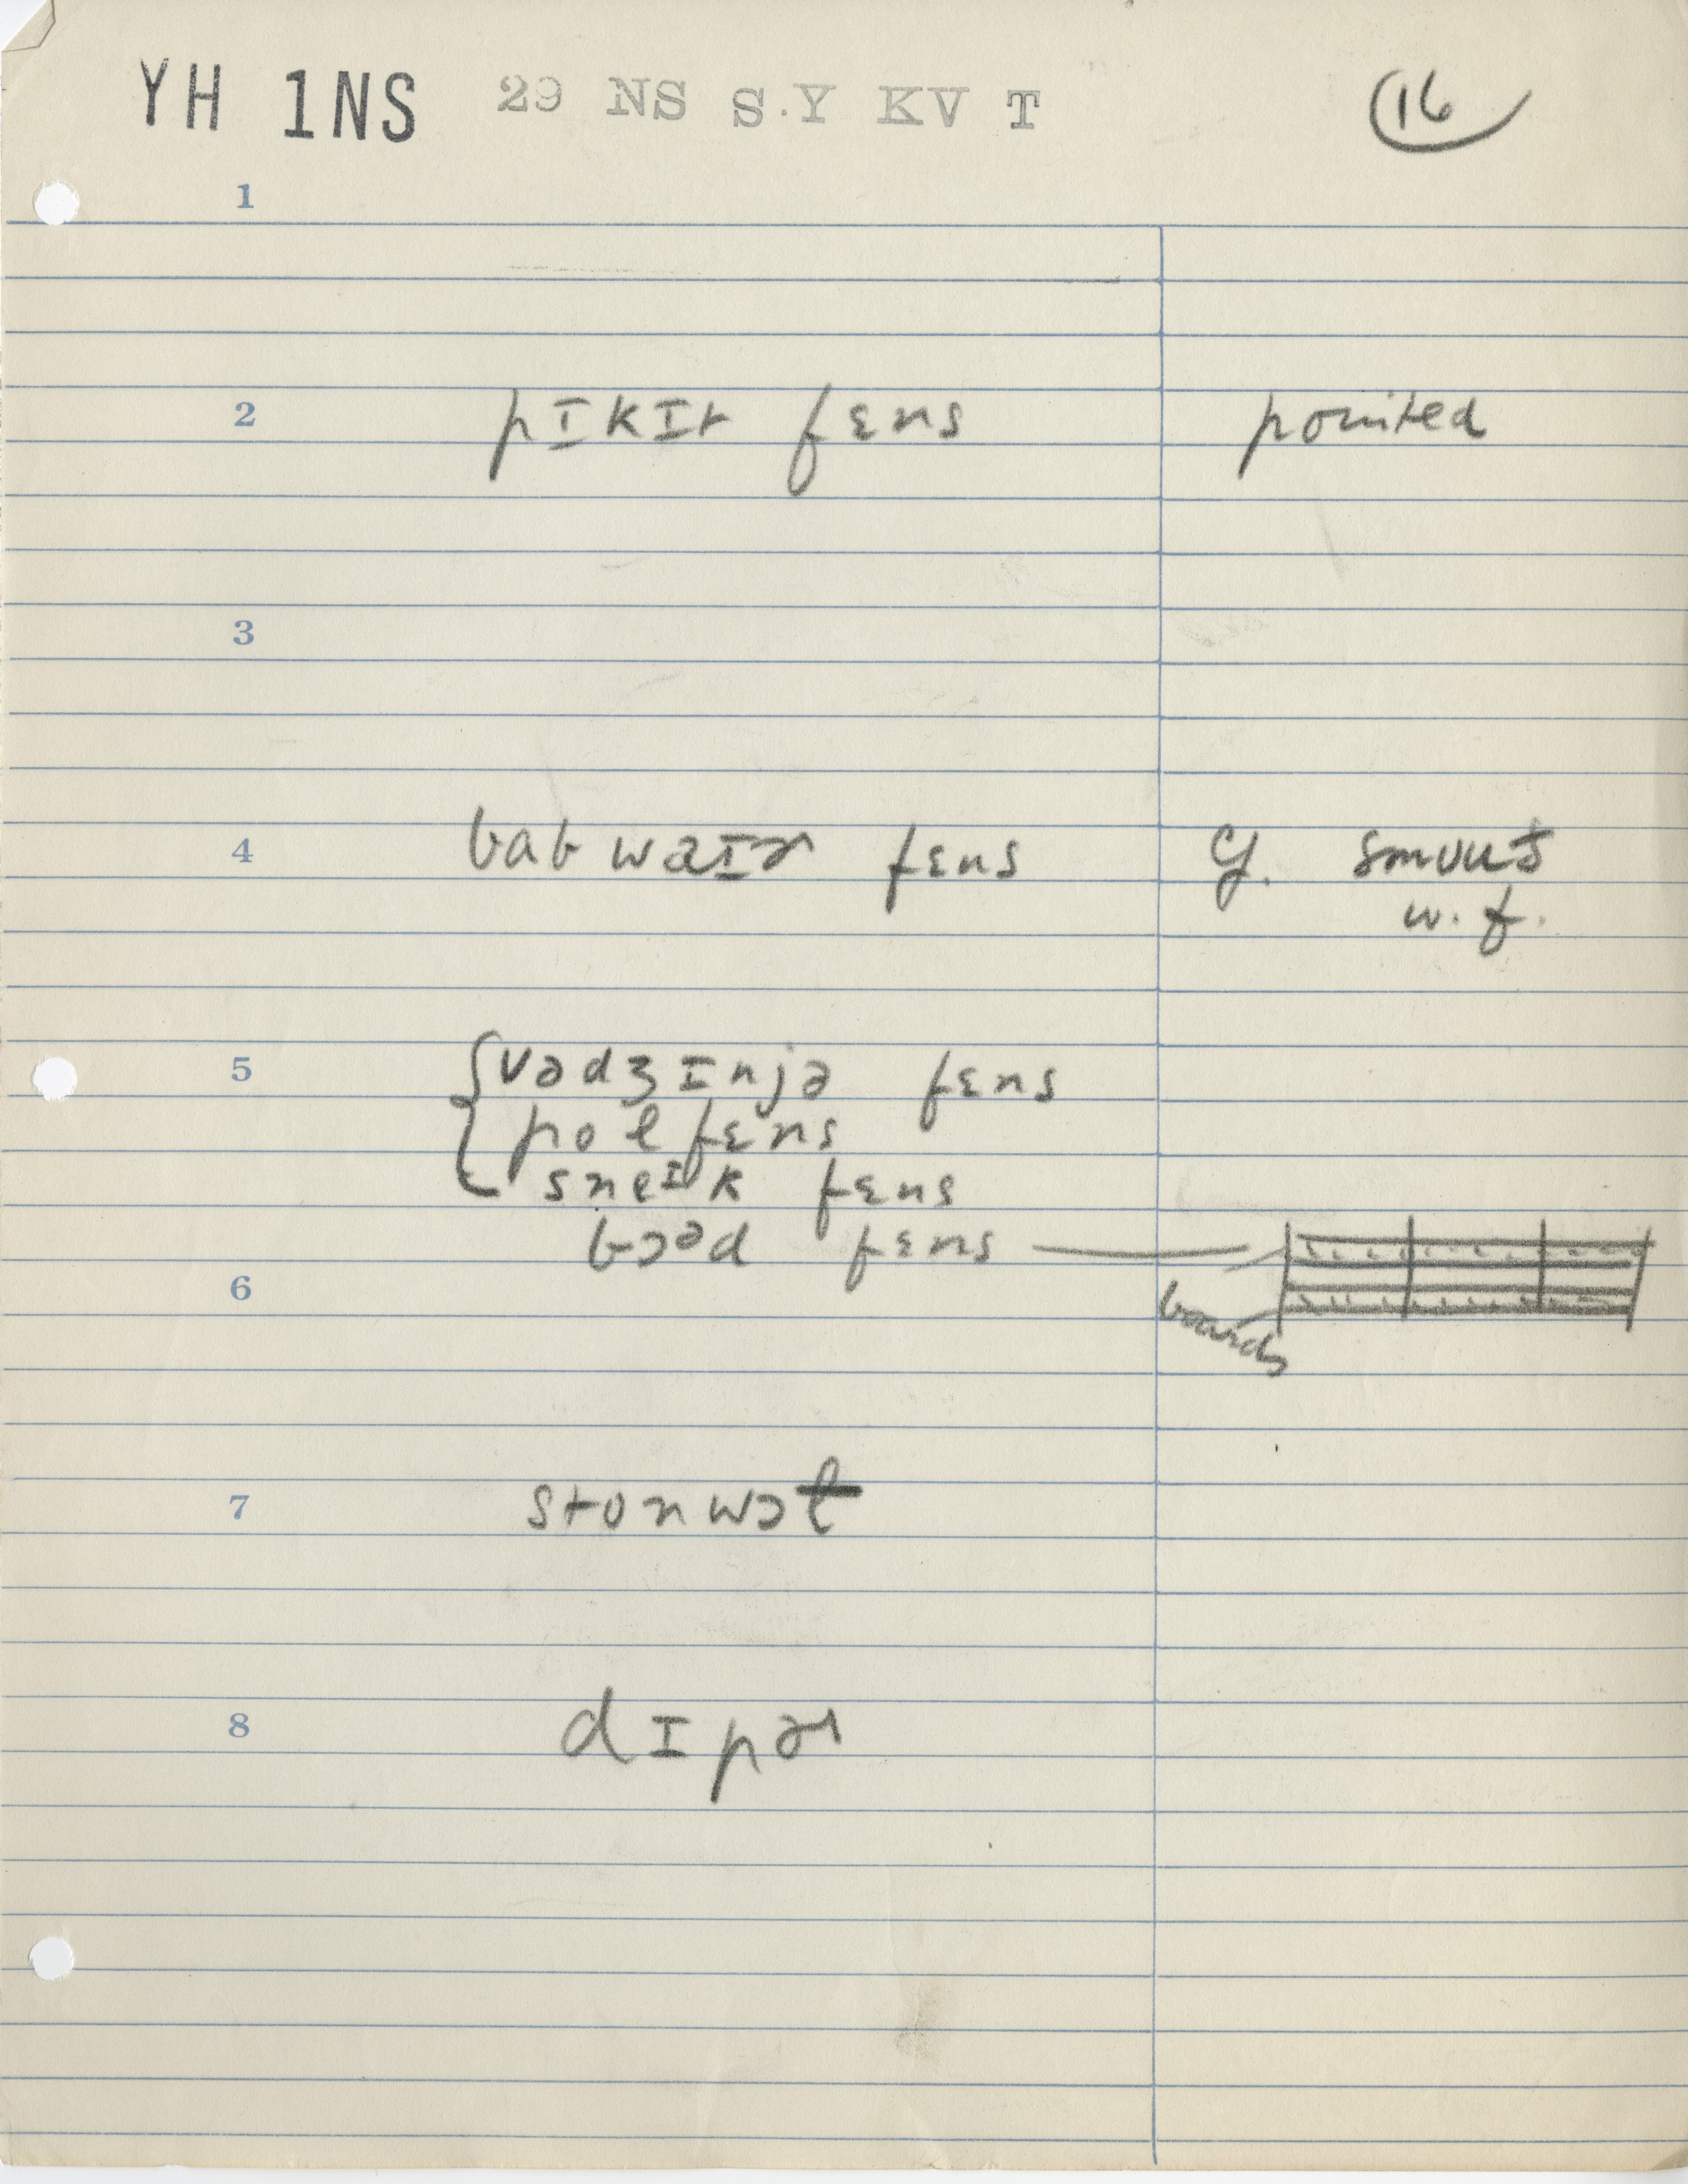 YH 1NS 29 NS S.Y KV T 16
1
2 pɪkɪt fɛns pointed
3
4 babwaɪɚ fɛns cf. smuuð
w. f.
5 vədʒɪnjə fɛns
pol fɛns
sneɪk fɛns
bɔəd fɛns
6 boards
7 stonwɔɫ
8 dɪpɚ